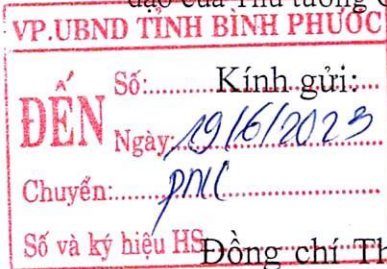 của Thủ tướng
VP.UBND TỈNH BÌNH PHƯỚC
ĐẾN
Số:........Kính gửi:
Ngày: 19/6/2023
Chuyển:
Số và ký hiệu HS Đồng chí Th